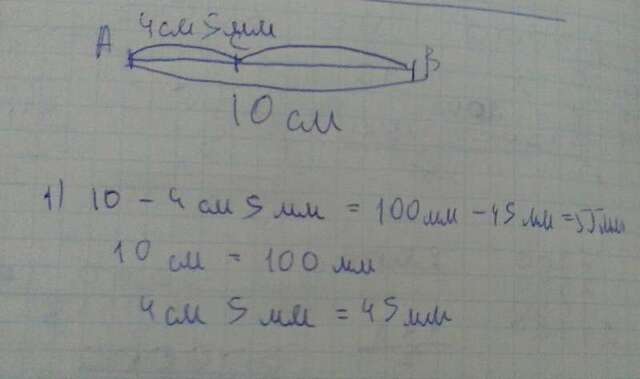 4см 5мм
A C B
10 см
1) 10 - 4 см 5 мм = 100мм - 45 мм = 55мм
10 см = 100 мм
4см 5 мм = 45мм